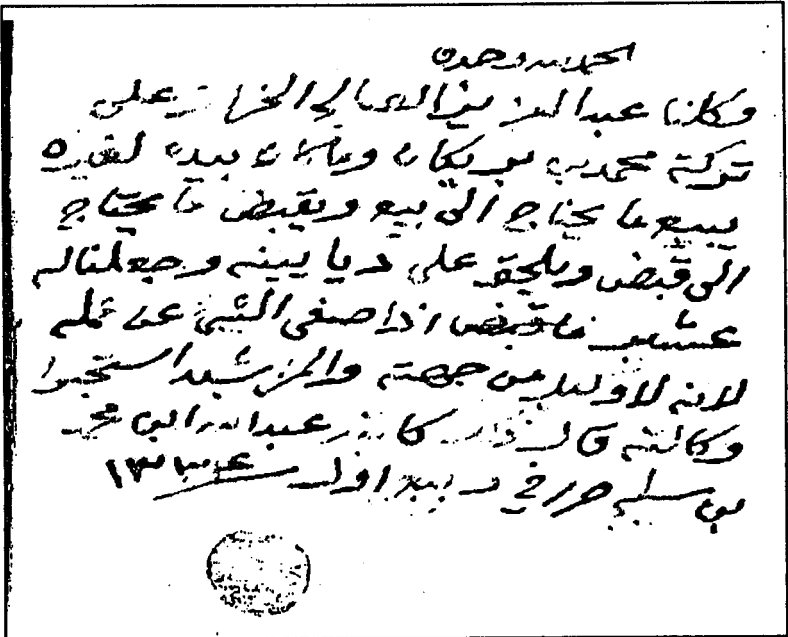 الحمد لله وحده
وكلنا عبد العزيز الصالح الخراز على
تركة محمد بن بريكان وما كان بيده لغيره
يبيع ما يحتاج الى بيع ويقبض ما يحتاج
الى قبض ويلحق على دياينه وجعلنا له
عشير ما قبض اذا صفى الشي عن عمله
لانه لا وليد من جهته والمرشد استحبوا
وكالته قال ذلك كاتبه عبدالله ابن محمد
بن سليم حرر في ربيع اول ١٣٣٤